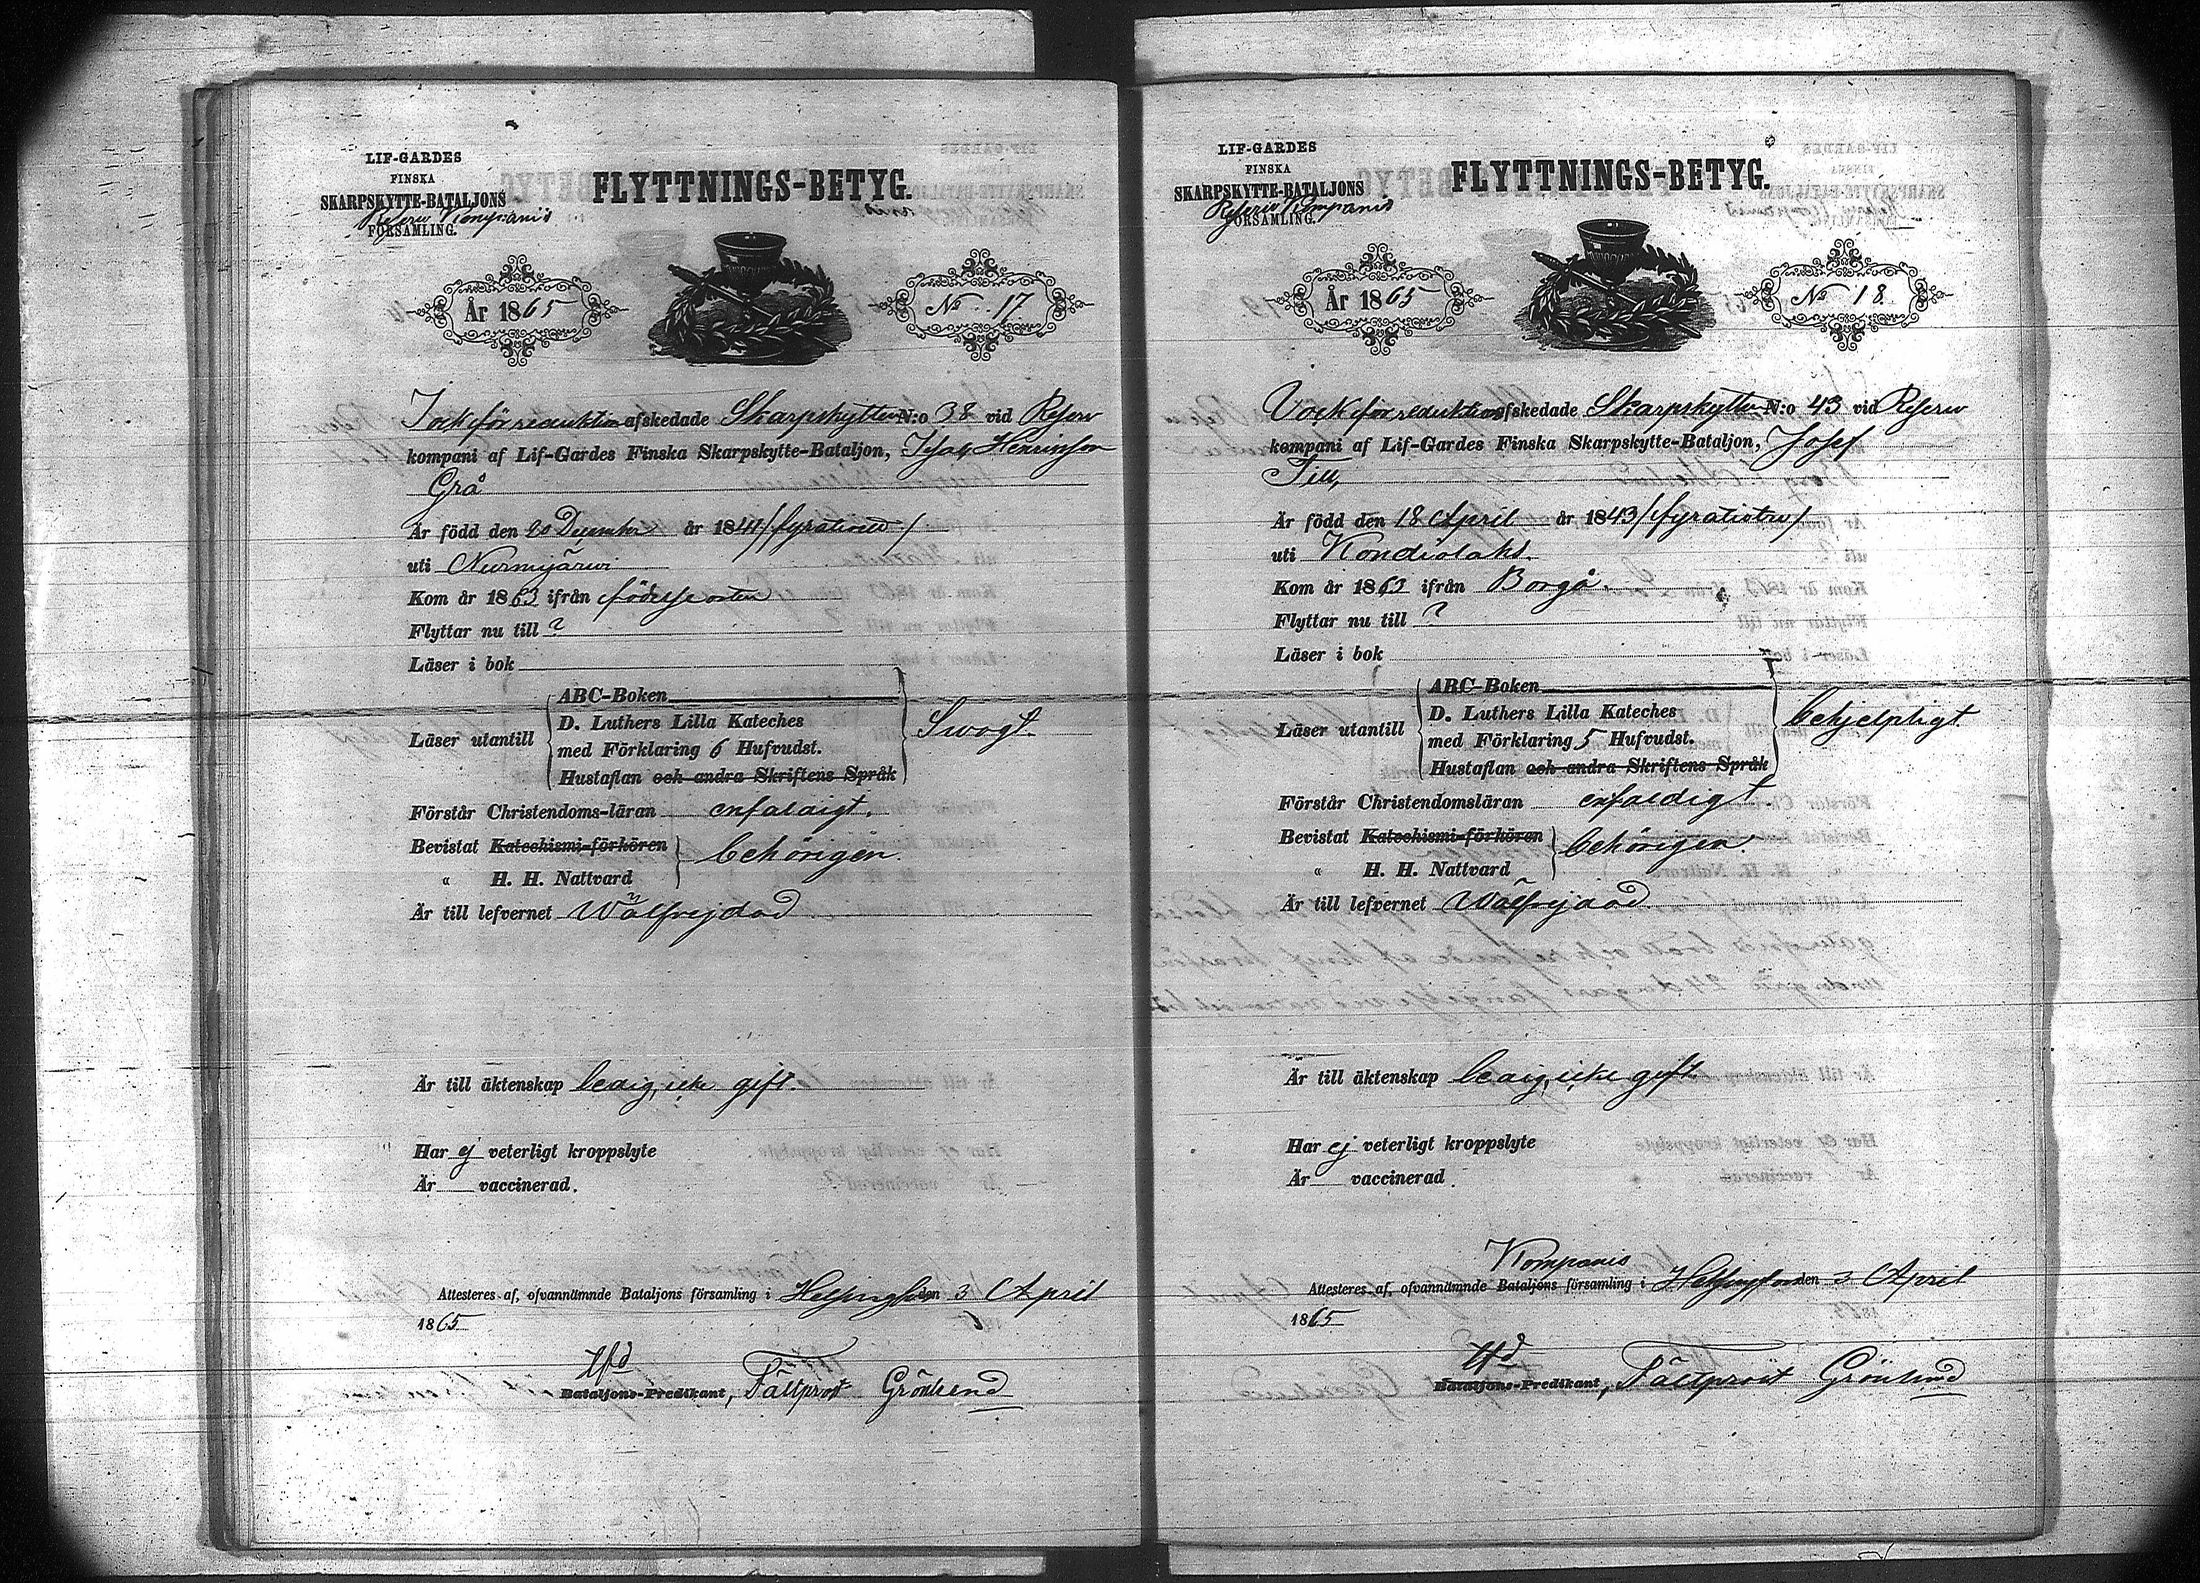 LIF-GARDES
FINSKA
SKARPSKYTTE-BATALJONS
Reserv Kompanis
FÖRSAMLING.
FLYTTNINGS-BETYG.
År 1865
No 17.
för reduktion afskedade Skarpskytten N:o 38 vid Reserv
kompani af Lif-Gardes Finska Skarpskytte-Bataljon, Isak Henriksson
Grå
Är född den 20 December år 1841 /fyrationde/
uti Nurmijärvi
Kom år 1863 ifrån födelseorten
Flyttar nu till ?
Läser i bok
Läser utantill
ABC-Boken
D. Luthers Lilla Kateches
med Förklaring 6 Hufvudst.
Hustaflan och andra Skriftens Språk
Svagt.
Förstår Christendoms-läran enfaldigt.
Bevistat Katechismi-förhören
„ H. H. Nattvard
behörigen.
Är till lefvernet Wälfrejdad
Är till äktenskap ledig, icke gift.
Har ej veterligt kroppslyte
Är vaccinerad.
Attesteres af, ofvannämnde Bataljons församling i Helsingfors den 3 April
1865
Bataljons-Predikant, Fältprost Grönlund
LIF-GARDES
FINSKA
SKARPSKYTTE-BATALJONS
Reserv Kompanis
FÖRSAMLING.
FLYTTNINGS-BETYG.
År 1865
No 18.
för reduktion afskedade Skarpskytten N:o 43 vid Reserv
kompani af Lif-Gardes Finska Skarpskytte-Bataljon, Josef
Till,
Är född den 18 April år 1843 /fyratiotre/
uti Kondiolaks
Kom år 1863 ifrån Borgå.
Flyttar nu till ?
Läser i bok
Läser utantill
ABC-Boken
D. Luthers Lilla Kateches
med Förklaring 5 Hufvudst.
Hustaflan och andra Skriftens Språk
behjelpligt
Förstår Christendomsläran enfaldigt
Bevistat Katechismi-förhören
„ H. H. Nattvard
behörigen.
Är till lefvernet Wälfrejdad.
Är till äktenskap ledig, icke gift.
Har ej veterligt kroppslyte
Är vaccinerad.
Kompanis
Attesteres af, ofvannämnde Bataljons församling i Helsingfors den 3 April
1865
Bataljons-Predikant, Fältprost Grönlund